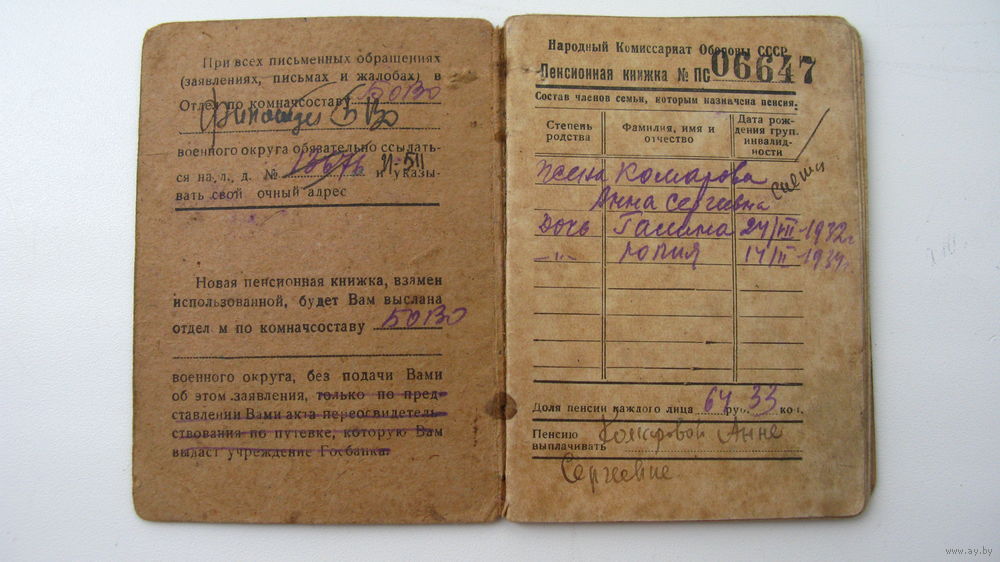 При всех письменных обращениях
(заявлениях, письмах и жалобах) в
Отдел по комначсоставу БОВО
БВО
военного округа обязательно ссылать-
ся на л. д. № и указы-
вать свой очный адрес
Новая пенсионная книжка, взамен
использованной, будет Вам выслана
отдел м по комначсоставу БОВО
военного округа, без подачи Вами
об этом заявления, только по пред-
ставлении Вами акта переосвидетель-
ствования по путевке, которую Вам
выдаст учреждение Госбанка.
Народный Комиссариат Обороны СССР
Пенсионная книжка № ПС 06647
Состав членов семьи, которым назначена пенсия.
Степень родства
Фамилия, имя и отчество
Дата рож-
дения груп.
инвалид-
ности
Жена Комарова
Анна Сергевна
Дочь Галина 24/VII-1932г
—"— 14/III-1939г.
Доля пенсии каждого лица 64 руб. 33 коп.
Пенсию выплачивать Комаровой Анне
Сергеевне
www.ay.by